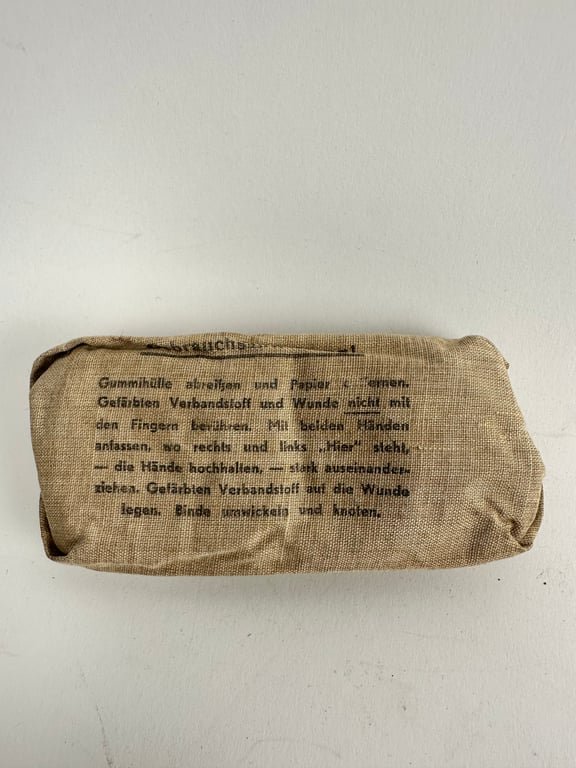 Gummihülle abreißen und Papier
Gefärbten Verbandstoff und Wunde nicht mit
den Fingern berühren. Mit beiden Händen
anfassen, wo rechts und links „Hier" steht,
— die Hände hochhalten, — stark auseinander-
ziehen. Gefärbten Verbandstoff auf die Wunde
legen. Binde umwickeln und knoten.